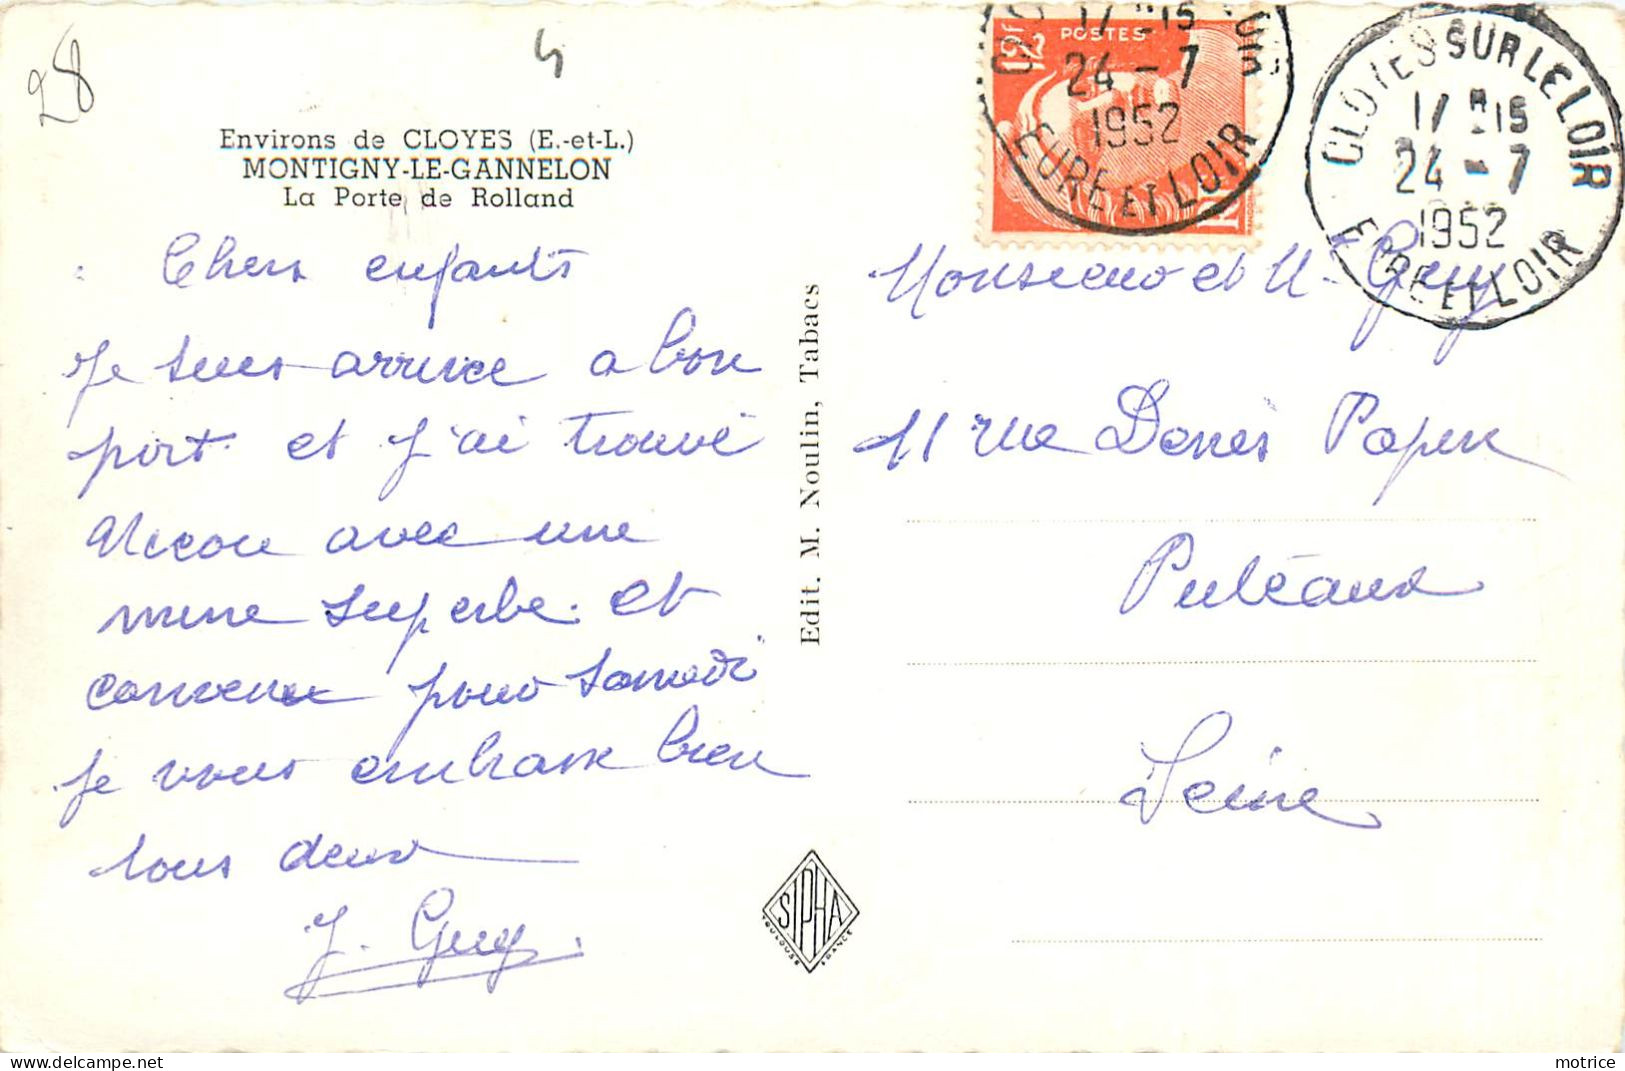 28
Environs de CLOYES (E.-et-L.)
MONTIGNY-LE-GANNELON
La Porte de Rolland
Chers enfants
Je suis arrivée a bon
port. et j'ai trouvé
avec une
mine superbe. et
convenu pour Samedi
je vous embrasse bien
tous deux
J. Guy.
Edit. M. Noulin, Tabacs
SIPHA
TOULOUSE
FRANCE
12F
POSTES
17 H 15
24 - 7
1952
EURE ET LOIR
CLOYES SUR LE LOIR
17 H 15
24 - 7
1952
EURE ET LOIR
Monsieur et M. Guy
11 rue Denis Papin
Putéaux
Seine
motrice